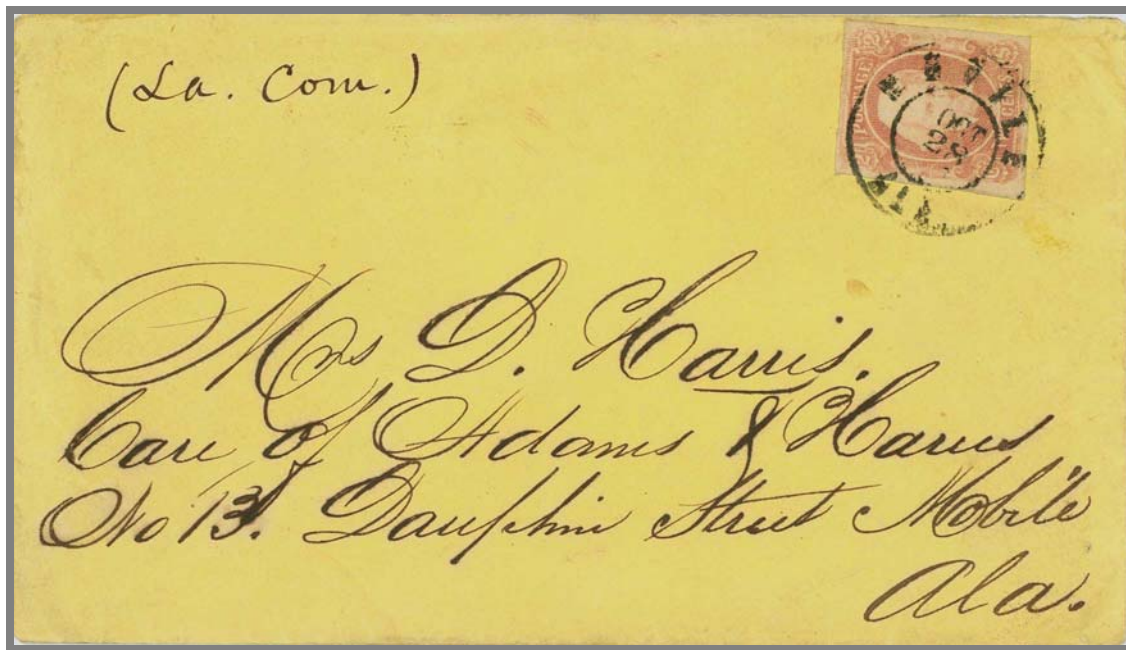 (La. Com.)
POSTAGE
MOBILE
OCT
28
ALA
Mrs D. Harris.
Care of Adams & Harris
No 13. Dauphin Street Mobile
Ala.